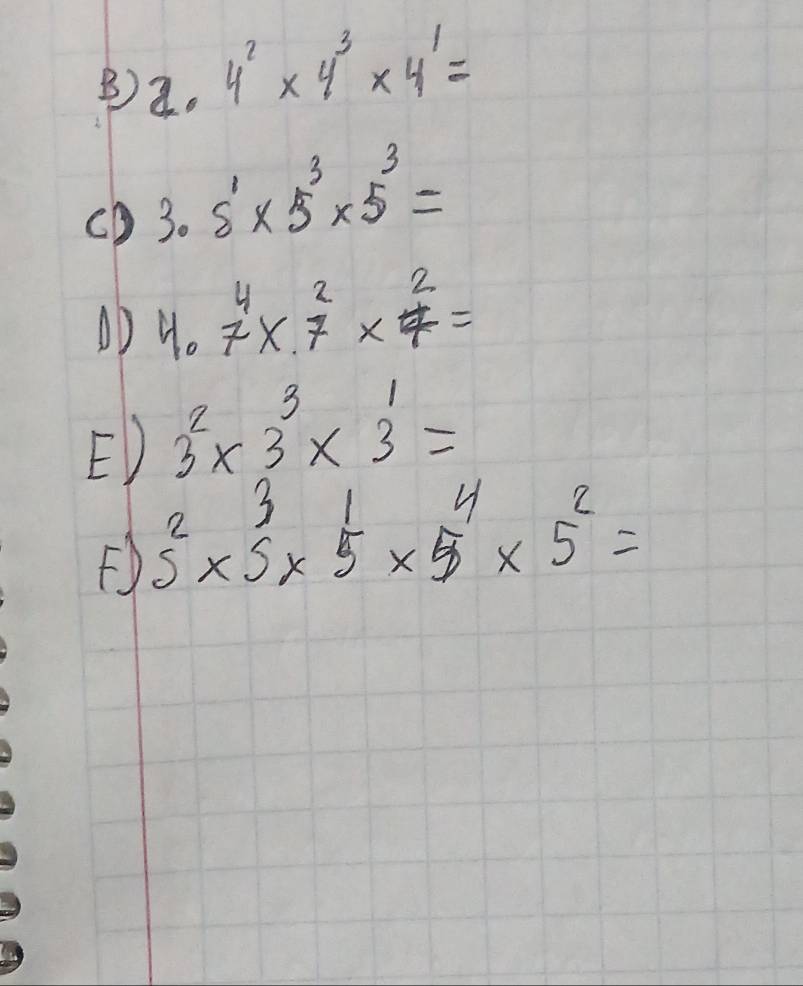 B) 2. 4² × 4³ × 4¹ =
C) 3. 5¹ × 5³ × 5³ =
D) 4. 7⁴ × 7² × 7² =
E) 3² × 3³ × 3¹ =
F) 5² × 5³ × 5¹ × 5⁴ × 5² =